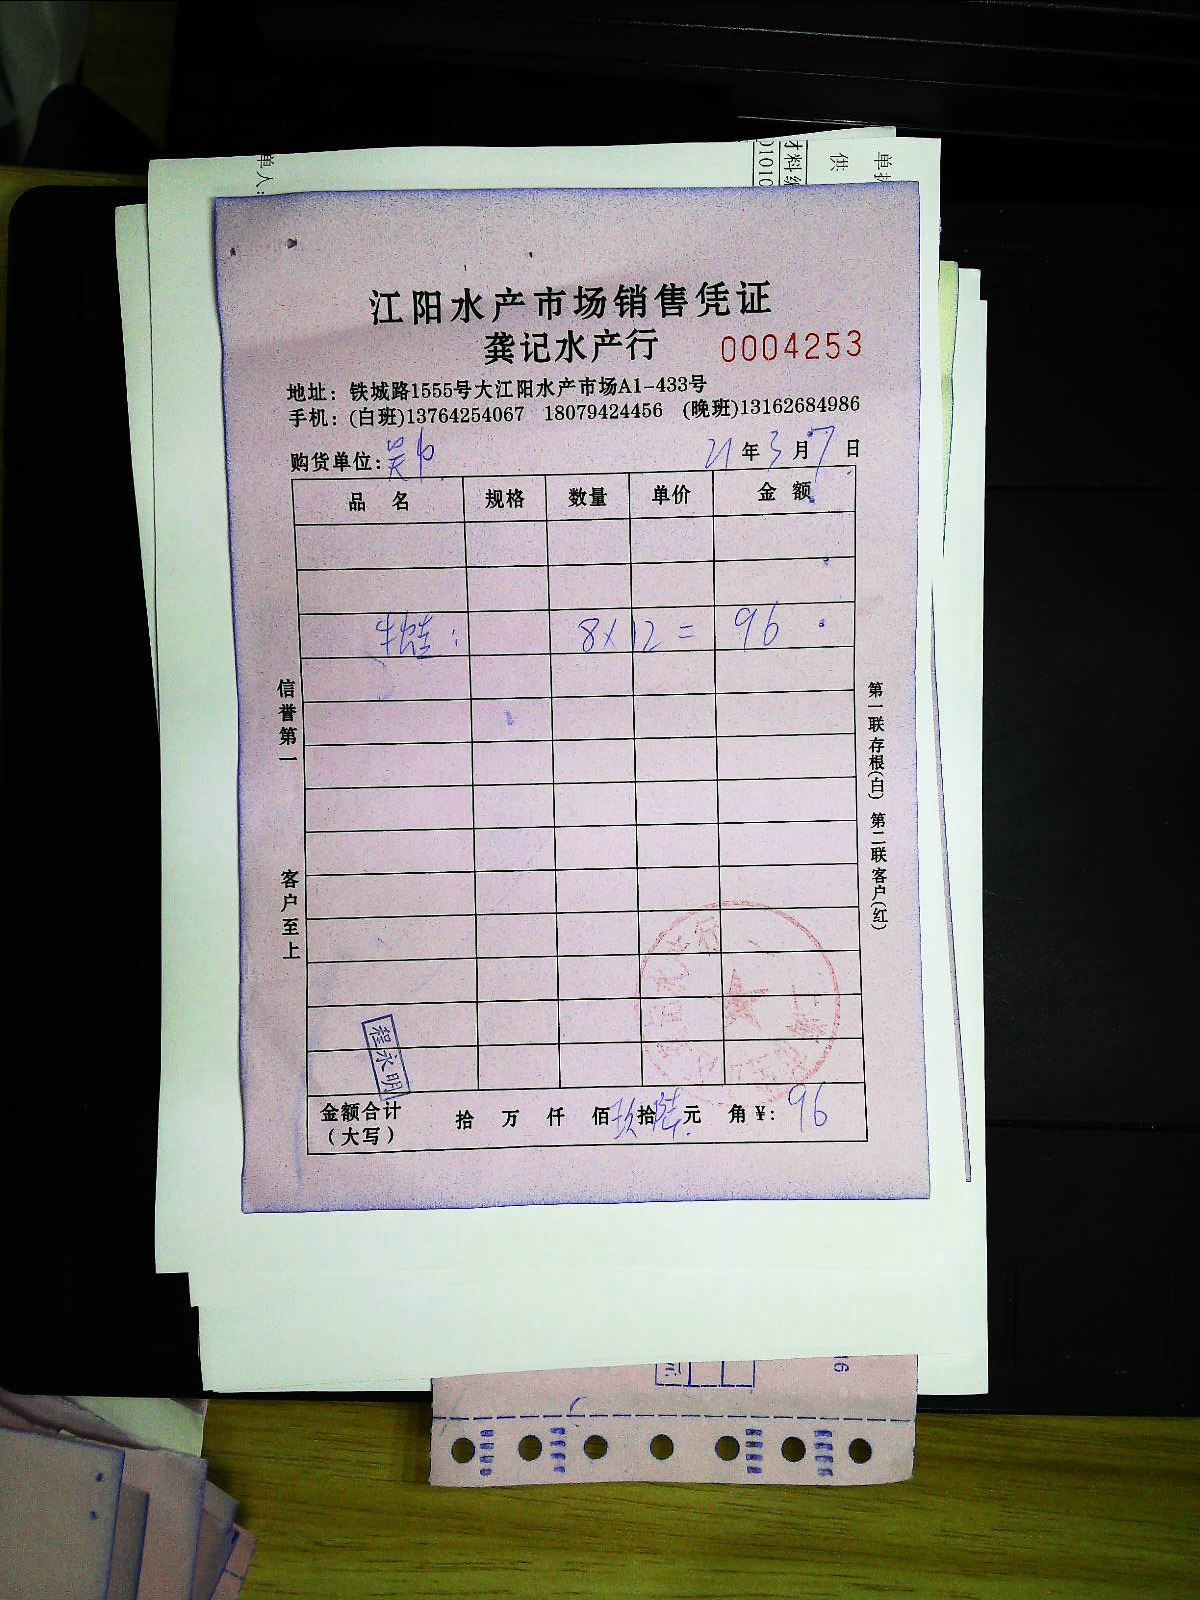 单人:
材料编
01010
供
单据
江阳水产市场销售凭证
龚记水产行 0004253
地址: 铁城路1555号大江阳水产市场A1-433号
手机: (白班)13764254067 18079424456 (晚班)13162684986
购货单位: 21 年 3 月 7 日
品 名 规格 数量 单价 金 额
8 X 12 = 96
信誉第一 客户至上
第一联存根(白) 第二联客户(红)
程永明
金额合计 拾 万 仟 佰 玖 拾 陆 元 角 ¥: 96
(大写)